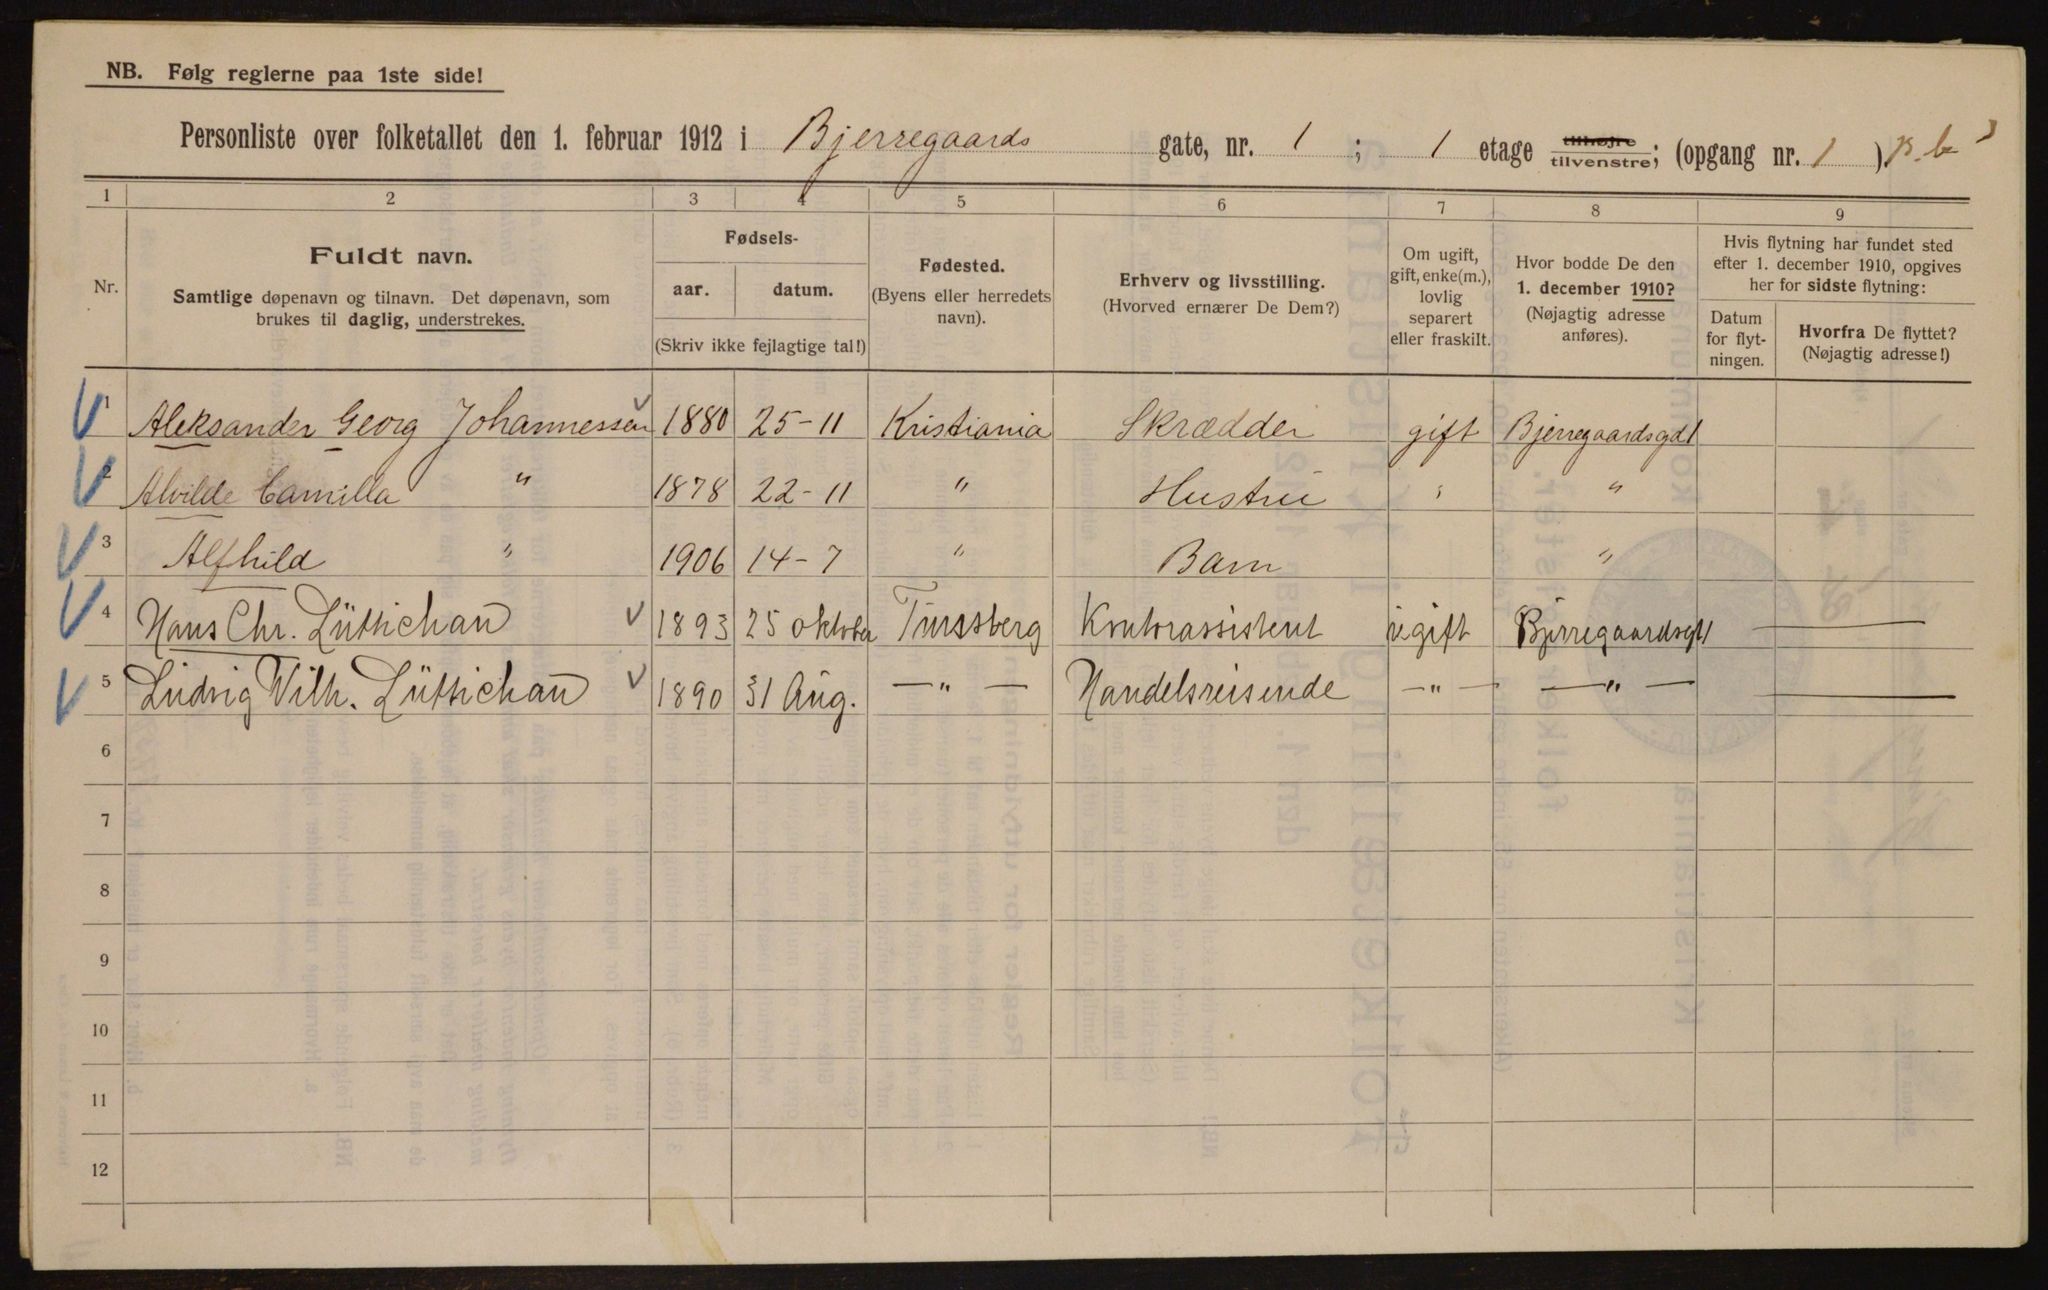 NB. Følg reglerne paa 1ste side!
Personliste over folketallet den 1. februar 1912 i Bjerregaards gate, nr. 1 ; 1 etage tilhøjre tilvenstre; (opgang nr. 1 ).
1 2 3 4 5 6 7 8 9
Nr.
Fuldt navn.
Samtlige døpenavn og tilnavn. Det døpenavn, som
brukes til daglig, understrekes.
Fødsels-
aar. datum.
(Skriv ikke fejlagtige tal!)
Fødested.
(Byens eller herredets
navn).
Erhverv og livsstilling.
(Hvorved ernærer De Dem?)
Om ugift,
gift, enke(m.),
lovlig
separert
eller fraskilt.
Hvor bodde De den
1. december 1910?
(Nøjagtig adresse
anføres).
Hvis flytning har fundet sted
efter 1. december 1910, opgives
her for sidste flytning:
Datum
for flyt-
ningen.
Hvorfra De flyttet?
(Nøjagtig adresse!)
1 Aleksander Georg Johannessen 1880 25-11 Kristiania Skrædder gift Bjerregaardsgd1
2 Alvilde Camilla " 1878 22-11 " Hustru " "
3 Alfhild " 1906 14-7 " Barn "
4 Hans Chr. Lüttichau 1893 25 oktober Tunsberg Kontorassistent ugift Bjerregaardsgt1 —
5 Ludvig Wilh. Lüttichau 1890 31 Aug. — " — Handelsreisende — " — — " — —
6
7
8
9
10
11
12